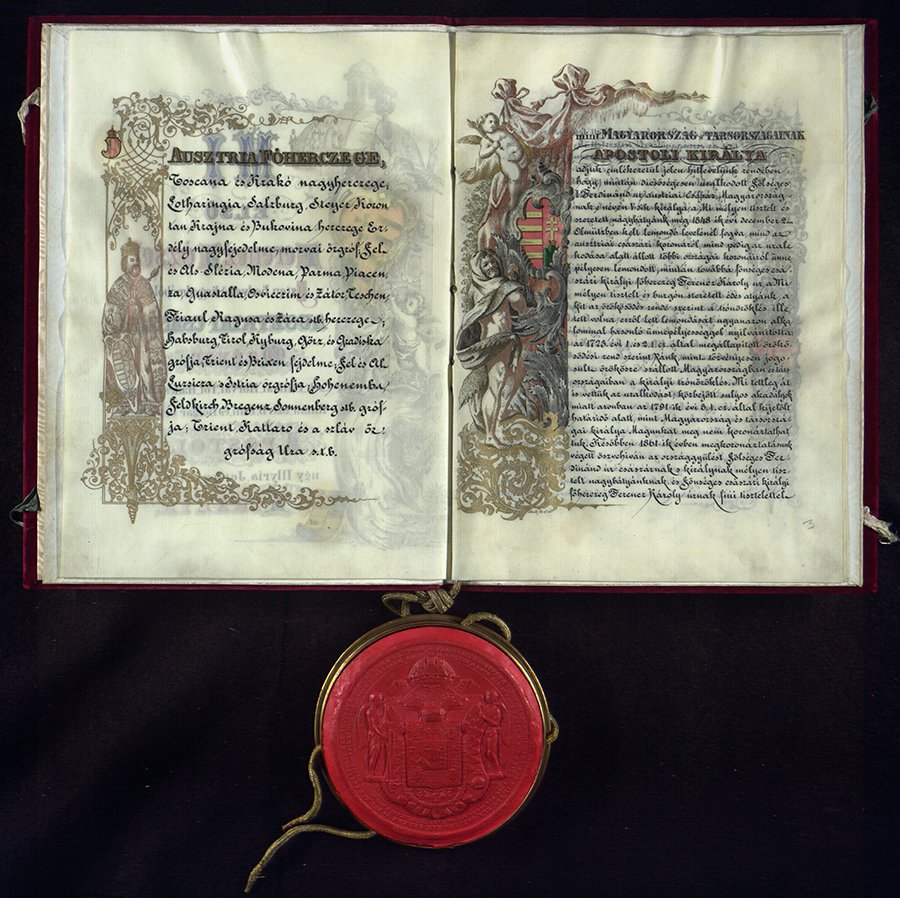 AUSZTRIA FŐHERCZEGE,
Toscana és Krakó nagyherczege;
Lotharingia, Salzburg, Steyer Koron
tan Krajna és Bukovina herczege Er-
dély nagyfejedelme, morvai őrgróf; Fel
és Als Slézia, Modena, Parma, Piacen-
za, Guastalla, Osvieczim és Zátor, Teschen,
Friaul Ragusa és Zára stb. herczege;
Habsburg, Tirol, Kyburg, Görz, és Gradiska
grófja; Trient és Brixen fejdelme; Fel és Al
Luzsicza s Istria őrgrófja; Hohenemba
Feldkirch Bregenz Sonnenberg stb. gróf-
ja; Trient Kattaro és a szláv őr
grófság Ura s.t.b.
mint MAGYARORSZÁG s TÁRSORSZÁGAINAK
APOSTOLI KIRÁLYA
adjuk emlékezetül jelen hitlevelünk rendében:
hogy miután dicsőségesen uralkodott Fölséges
I Ferdinánd úr ausztriai Császár, Magyarország-
nak e néven V-ik királya, a Mi mélyen tisztelt és
szeretett nagybátyánk még 1848 ik évi december 2án
Olmützben kelt lemondó levelénél fogva, mind az
ausztriai császári koronáról, mind pedig az uralk
kodása alatt állott többi országai koronáiról ünne-
pélyesen lemondott, miután továbbá fönséges csá-
szári királyi főherczeg Ferencz Károly úr, a Mi
mélyen tisztelt és buzgón szeretett édes atyánk, a
kit az örökösödés rende szerint a trónöröklés, ille-
tett volna erről lett lemondását ugyanazon alka-
lommal hasonló ünnepélyességgel nyilvánította:
az 1723. évi 1. és 2. t. cz. által megállapított örökö-
södési rend szerint Ránk, mint törvényesen jogo-
sult örökösre szállott Magyarországban és társ
országaiban a királyi trónöröklés. Mi tettleg át
is vettük az uralkodást; közbejött sulyos akadályok
miatt azonban az 1791. ik évi 3. t. cz. által kijelölt
határidő alatt, mint Magyarország és társorszá-
gai királya Magunkat meg nem koronáztathat
tuk. Későbben 1861. ik évben megkoronáztatásunk
végett összehiván az országgyűlést Fölséges Fer-
dinánd úr császárnak s királynak mélyen tisz-
telt nagybátyánknak, és Fönséges császári királyi
főherczeg Ferencz Károly úrnak fiúi tisztelettel
3